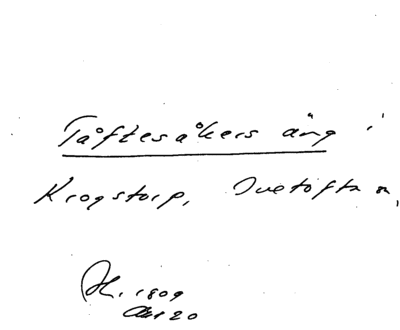 Tåftesåkers äng i
Krogstorp, Duetofta n,
H. 1809
Akt 20